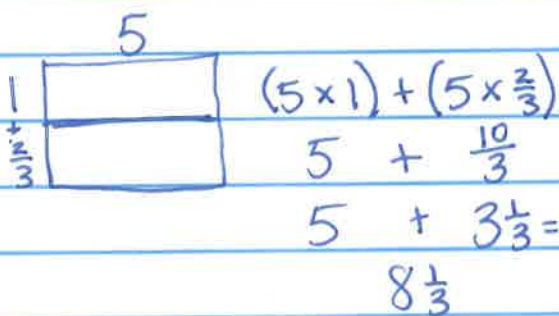 5
1 (5 × 1) + (5 × 2/3)
+ 2/3 5 + 10/3
5 + 3 1/3 =
8 1/3